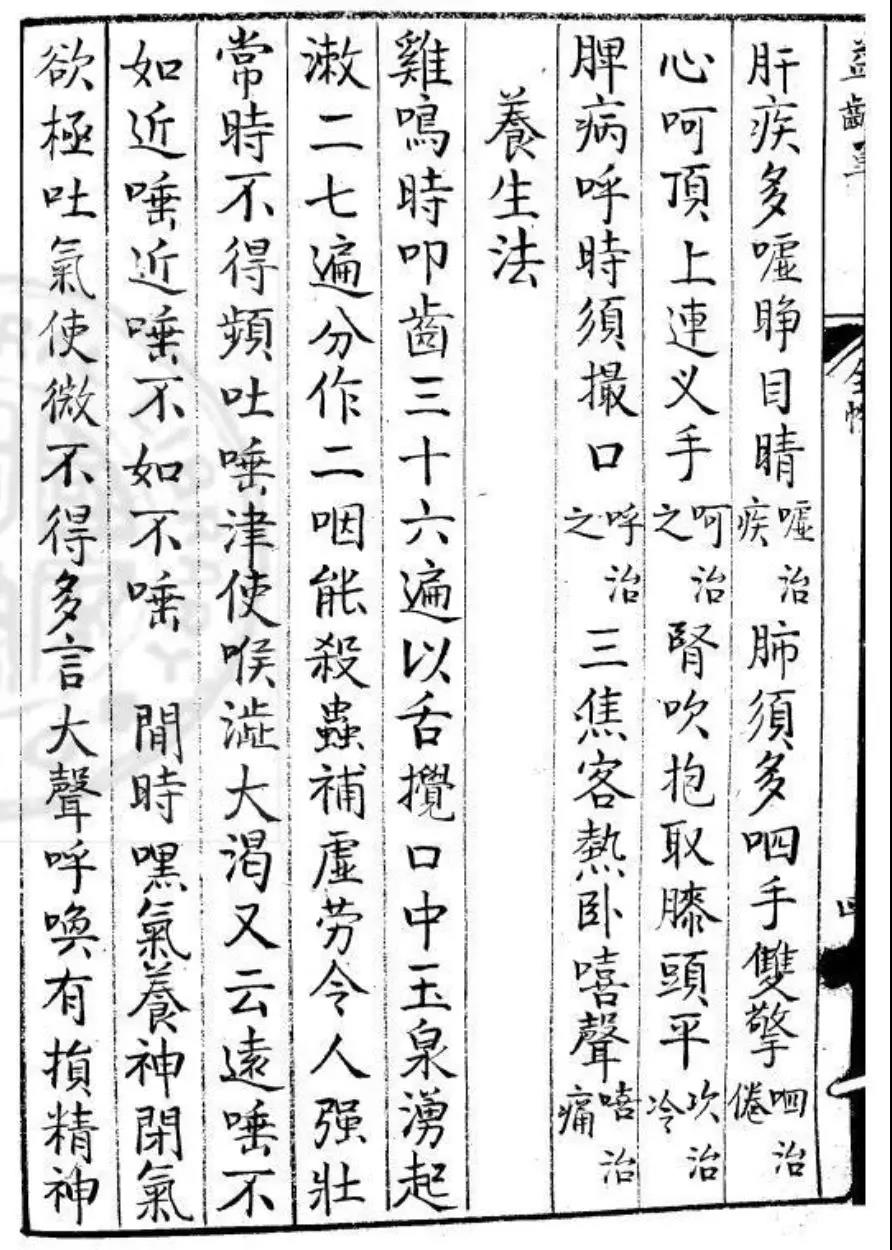 肝疾多噓睁目睛噓治疾肺須多呬手雙擎呬治倦
心呵頂上連义手呵治之腎吹抱取膝頭平吹治冷
脾病呼時須撮口呼治之三焦客熱卧嘻聲嘻治痛
養生法
雞鳴時叩齒三十六遍以舌攪口中玉泉湧起
漱二七遍分作二咽能殺蟲補虛劳令人强壯
常時不得頻吐唾津使喉澁大渴又云遠唾不
如近唾近唾不如不唾 閒時嘿氣養神閉氣
欲極吐氣使微不得多言大聲呼喚有損精神